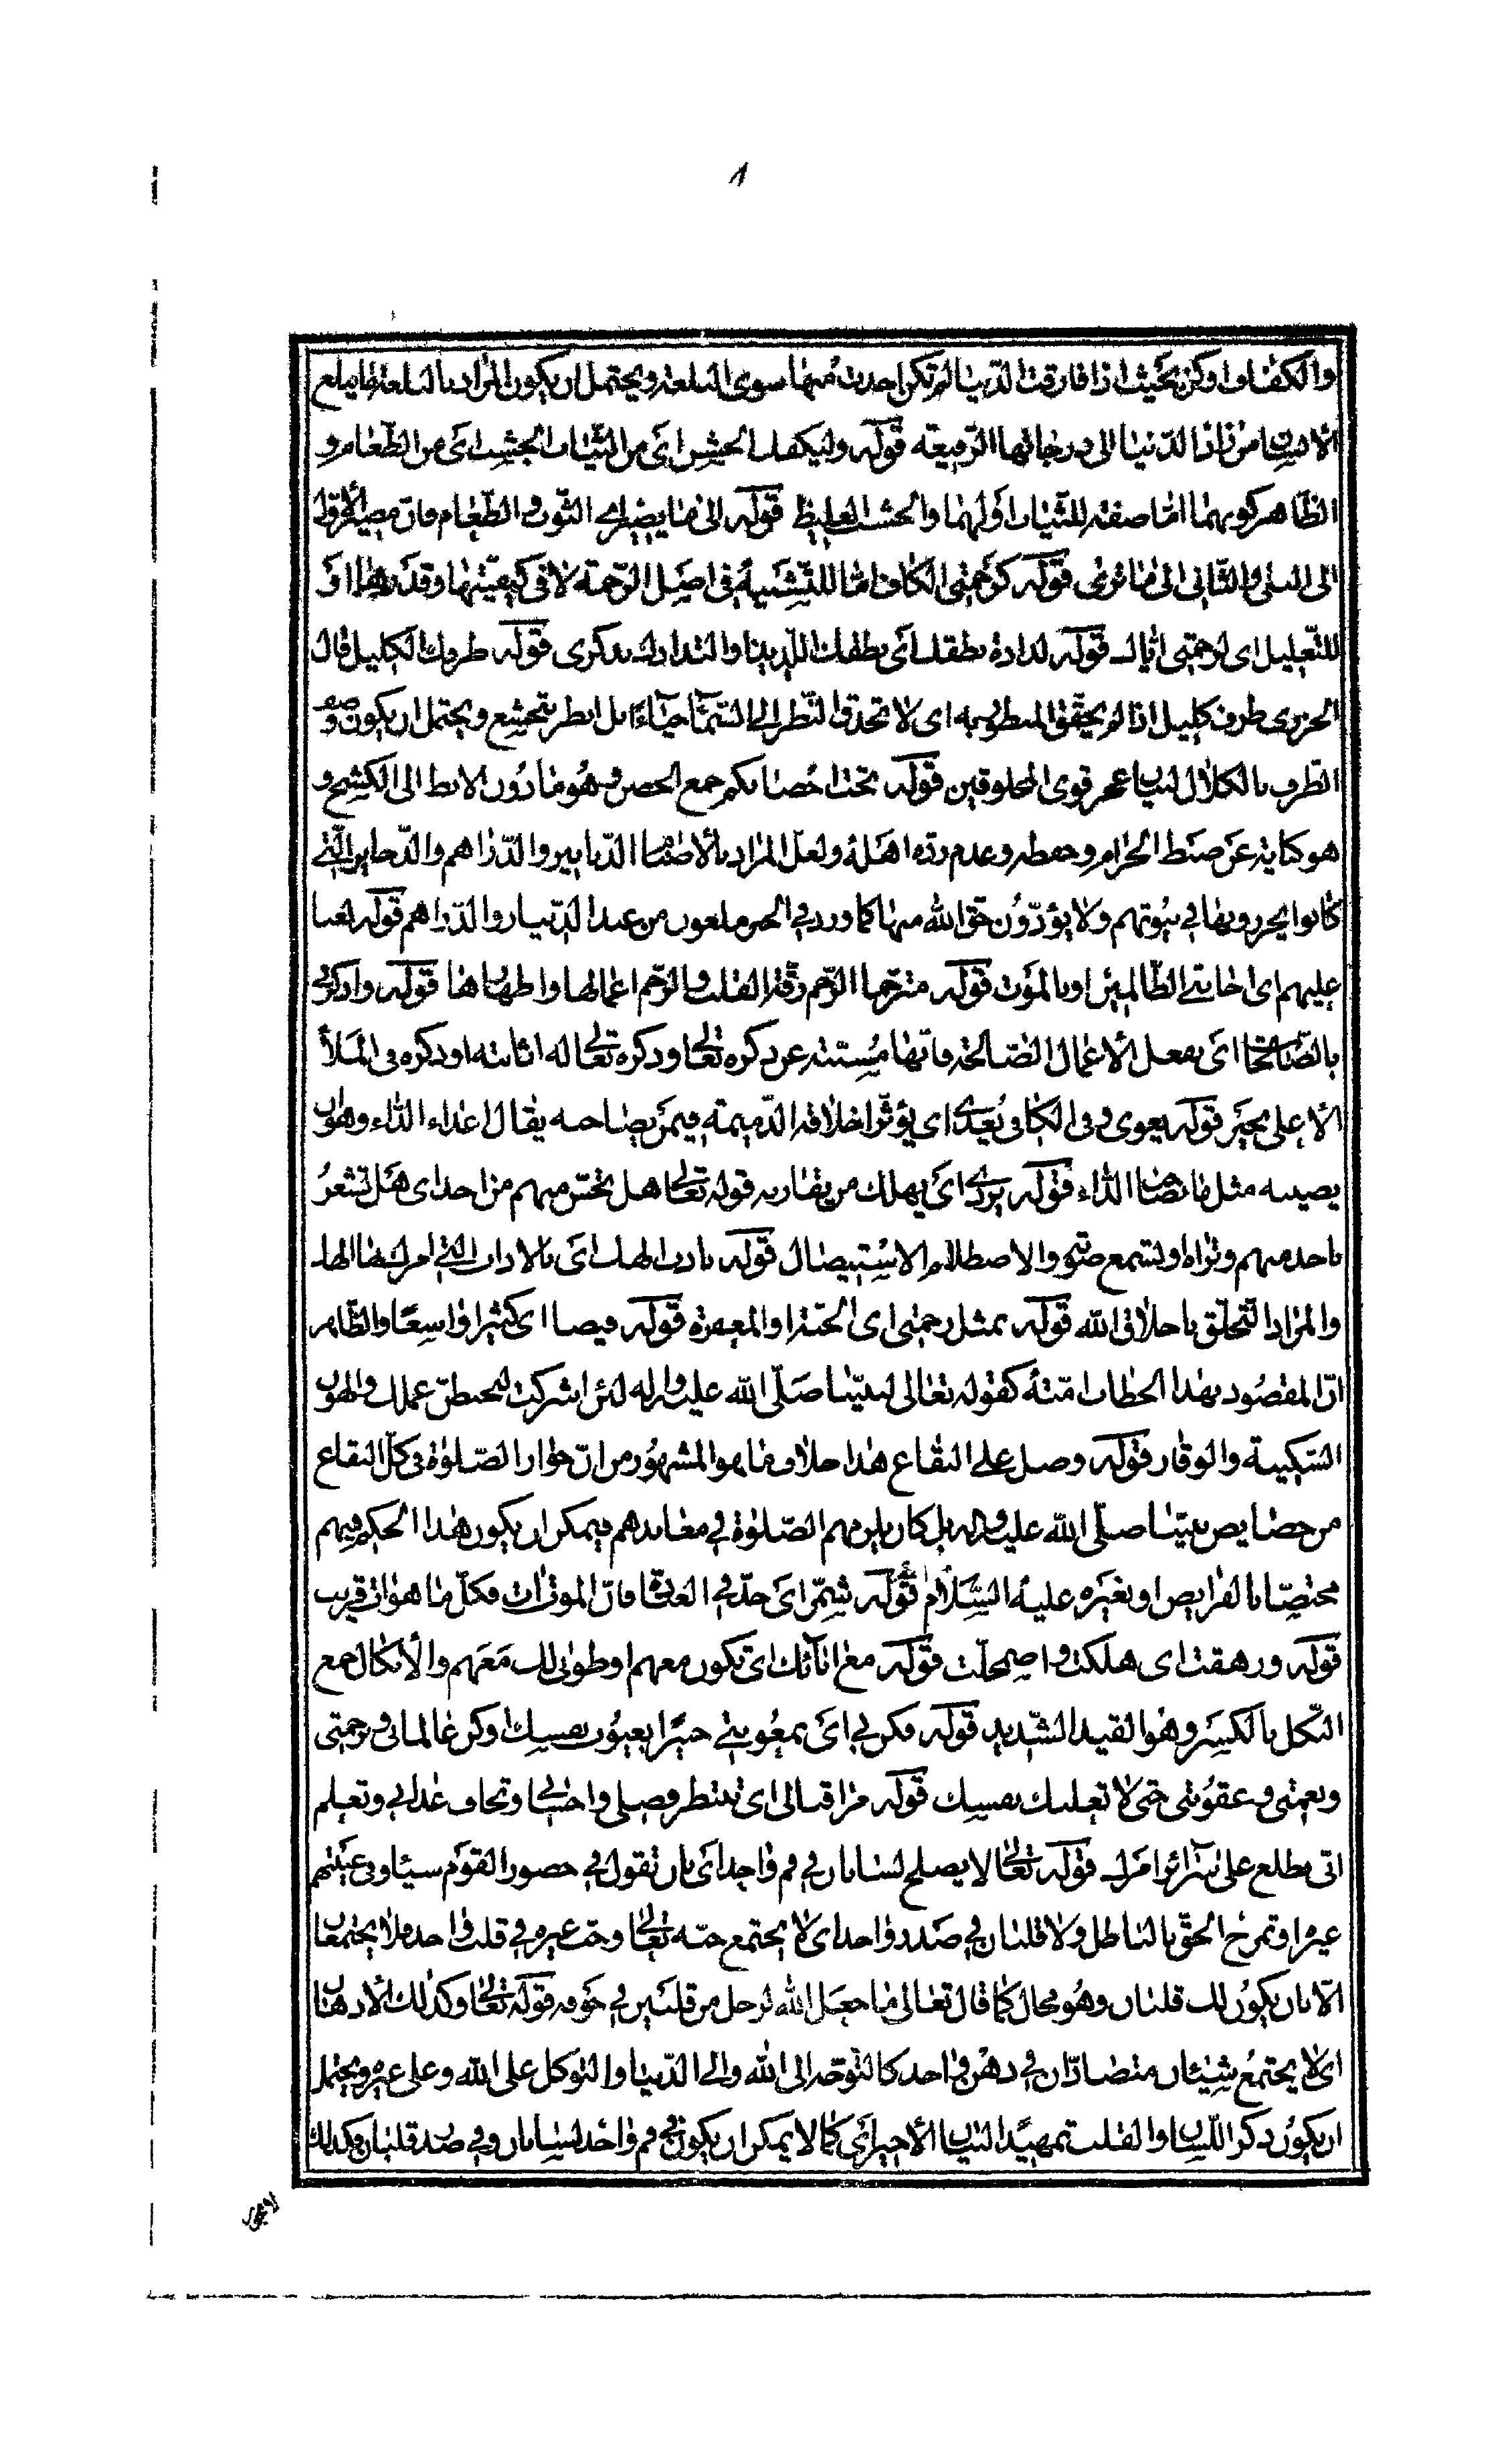 ٨
والكفاف وكن بحيث اذا فارقت الدنيا لم تكن احذت منها سوى البلغة ويحتمل ان يكون المراد بالبلغة ما يبلغ
الانسان من زاد الدنيا الى درجاتها الرفيعة قوله وليكفك الخشن اى من الثياب الجشب اى من الطعام و
الظاهر كونهما اما صفة للثياب اولهما والخشن الغليظ قوله الى ما يصير اى الثوب والطعام فان مصير الاول
الى البلى والثانى الى ما ترى قوله كرحمتى الكاف اما للتشبيه فى اصل الرحمة لا فى كيفيتها وقدرها او
للتعليل اى لرحمتى اياك قوله لدادة نطقك اى نطقك اللذيذ او التذاذك بذكرى قوله طرفك الكليل قال
الجزرى طرف كليل اذا لم يحقق المنظور به اى لا تحدق النظر الى السماء حياء بل انظر بتخشع ويحتمل ان يكون وصف
الطرف بالكلال لبيان عجز قوى المخلوقين قوله تحت احضانكم جمع الحضن وهو ما دون الابط الى الكشح و
هو كناية عن ضبط الحرام وحفظه وعدم رده اهله ولعل المراد بالاصنام الدنانير والدراهم والذخاير التى
كانوا يحرزونها فى بيوتهم ولا يؤدون حق الله منها كما ورد فى الخبر ملعون من عبد الدينار والدراهم قوله لعنا
عليهم اى اجابتى الظالمين او بالموت قوله مترحما الرحم رقة القلب والترحم اعمالها واظهارها قوله واذكرنى
بالصالحات اى بفعل الاعمال الصالحة فانها مسببة عن ذكره تعالى وذكره تعالى له اثابته او ذكره فى الملأ
الاعلى بخير قوله يعوى وفى الكافى يعدى اى يؤثر اخلاقه الذميمة فيمن يصاحبه يقال اعداه الداء وهو ان
يصيبه مثل ما بصاحب الداء قوله يردى اى يهلك من يقاربه قوله تعالى هل تحس منهم من احد اى هل تشعر
باحد منهم وتراه او تسمع صوته والاصطلام الاستيصال قوله بادب الهك اى بالاداب التى امرك بها الهك
والمراد التخلق باخلاق الله قوله بمثل رحمتى اى الجنة او المغفرة قوله فيصا اى كثيرا واسعا والظاهر
ان المقصود بهذا الخطاب امته كقوله تعالى لنبينا صلى الله عليه واله لئن اشركت ليحبطن عملك والهون
السكينة والوقار قوله وصل على البقاع هذا خلاف ما هو المشهور من ان جواز الصلوة فى كل البقاع
من خصايص نبينا صلى الله عليه واله بل كان يلزمهم الصلوة فى معابدهم فيمكن ان يكون هذا الحكم فيهم
مختصا بالفرايص او بغيره عليه السلام قوله شمر اى جد فى العبادة فان الموت ات فكل ما هو ات قريب
قوله ورهقت اى هلكت واضمحلت قوله مع انآئك اى تكون معهم او طوبى لك معهم والانكال جمع
النكل بالكسر وهو القيد الشديد قوله فكن بى اى بمعونتى خبيرا بعيوب نفسك وكن عالما بى وبرحمتى
ونعمتى وعقوبتى حتى لا تغلبك نفسك قوله من اقبالى اى تنتظر فضلى واحسانى وتخاف عذابى وتعلم
انى مطلع على سرائر امرك قوله تعالى لا يصلح لسانان فى فم واحد اى بان تقول فى حضور القوم شيئا وفى غيبتهم
غيره او تمزج الحق بالباطل ولا قلبان فى صدر واحد اى لا يجتمع حبه تعالى وحب غيره فى قلب واحد فلا يجتمعان
الا بان يكون لك قلبان وهو محال كما قال تعالى ما جعل الله لرجل من قلبين فى جوفه قوله تعالى وكذلك الاذهان
اى لا يجتمع شيئان متضادان فى ذهن واحد كالتوجه الى الله والى الدنيا والتوكل على الله وعلى غيره ويحتمل
ان يكون ذكر اللسان والقلب تمهيدا لبيان الاخير اى كما لا يمكن ان يكون فى فم واحد لسانان وفى صدر قلبان فكذلك
لا يجوز